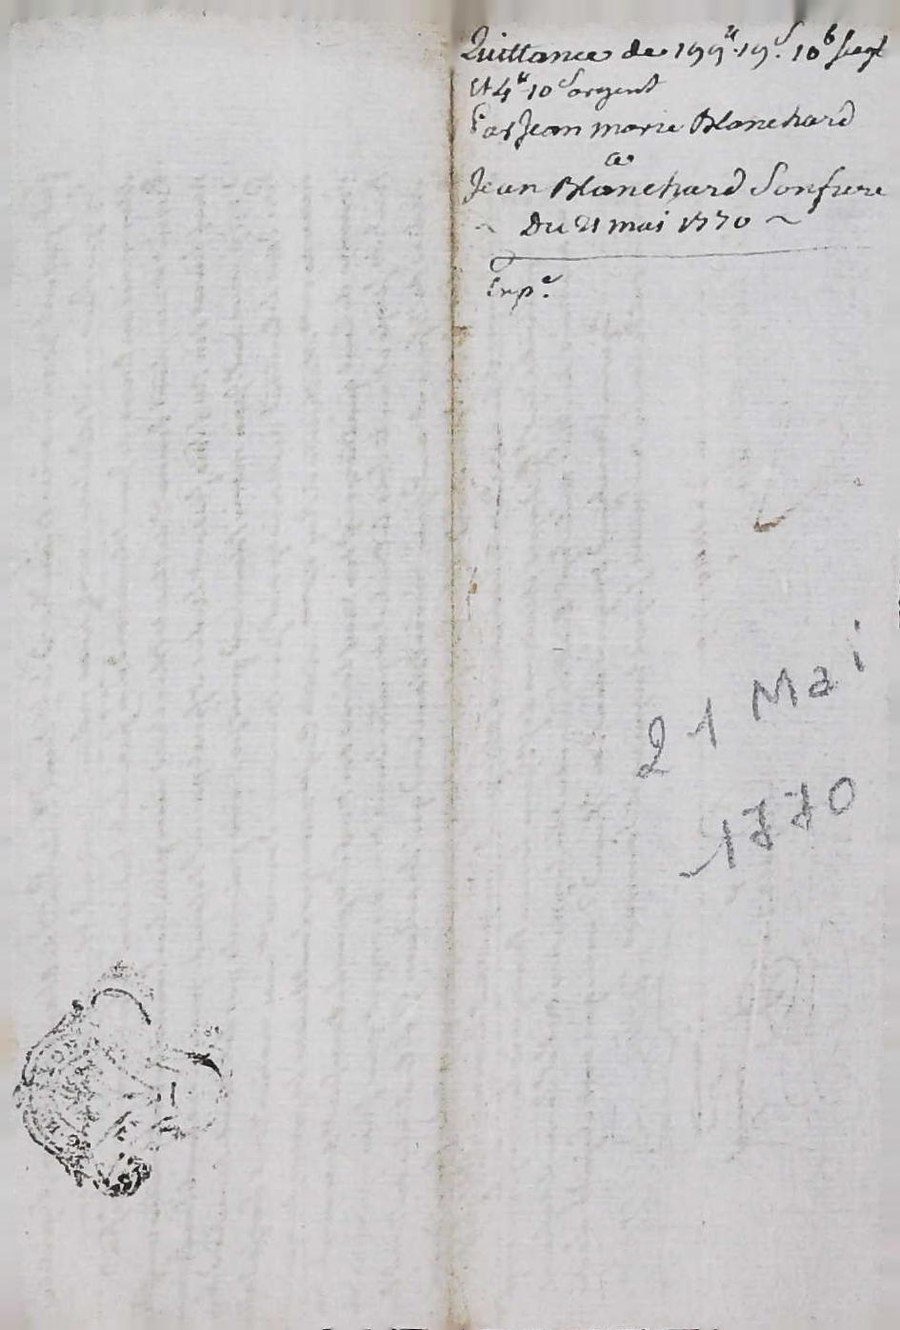 Quittance de 199tt 19s 10d
et 4tt 10s argent
Par Jean marie Blanchard
a
Jean Blanchard Son frere
~ Du 21 mai 1770 ~
Exp.e
21 Mai
1770